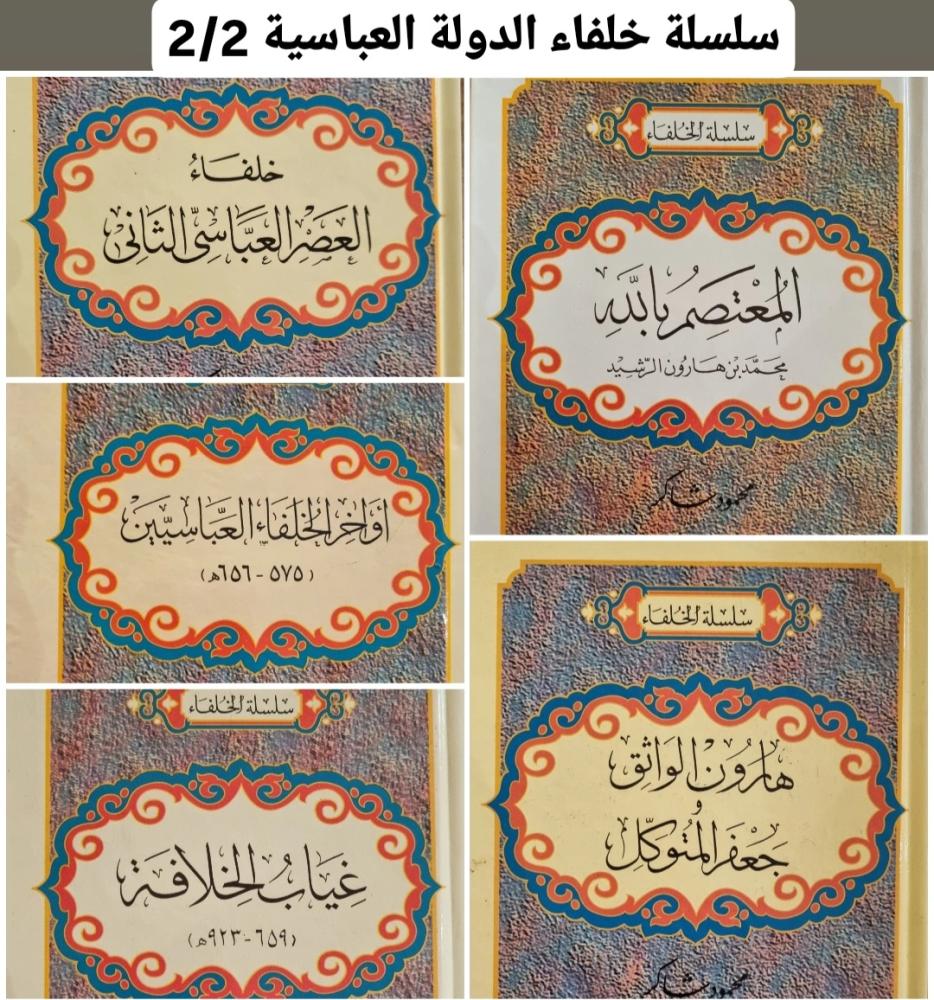 سلسلة خلفاء الدولة العباسية 2/2
سلسلة الخلفاء
المعتصم بالله
محمد بن هارون الرشيد
محمود شاكر
سلسلة الخلفاء
هارون الواثق
و
جعفر المتوكل
محمود شاكر
خلفاء
العصر العباسي الثاني
أواخر الخلفاء العباسيين
(٥٧٥ - ٦٥٦ هـ)
سلسلة الخلفاء
غياب الخلافة
(٦٥٩ - ٩٢٣ هـ)